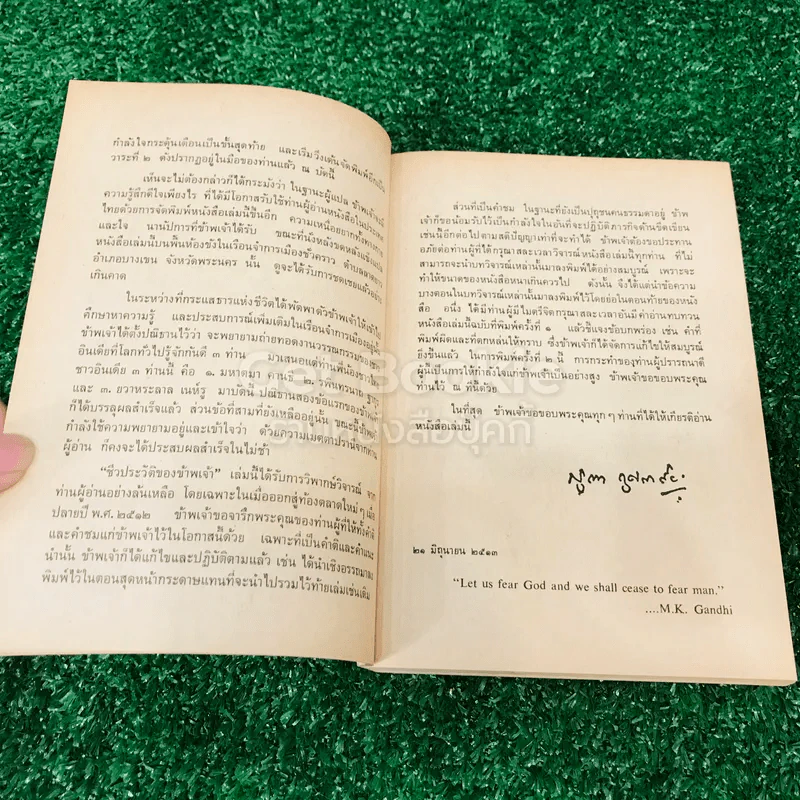 กำลังใจกระตุ้นเตือนเป็นขั้นสุดท้าย และเริ่มวิ่งเต้นจัดพิมพ์อีกเป็น
วาระที่ ๒ ดังปรากฏอยู่ในมือของท่านแล้ว ณ บัดนี้
เห็นจะไม่ต้องกล่าวก็ได้กระมังว่า ในฐานะผู้แปล ข้าพเจ้าจะมี
ความรู้สึกดีใจเพียงไร ที่ได้มีโอกาสรับใช้ท่านผู้อ่านหนังสือในประเทศ
ไทยด้วยการจัดพิมพ์หนังสือเล่มนี้ขึ้นอีก ความเหนื่อยยากทั้งทางกาย
และใจ นานัปการที่ข้าพเจ้าได้รับ ขณะที่นั่งหลังขดหลังแข็งแปล
หนังสือเล่มนี้บนพื้นห้องขังในเรือนจำการเมืองชั่วคราว ตำบลลาดยาว
อำเภอบางเขน จังหวัดพระนคร นั้น ดูจะได้รับการชดเชยแล้วอย่าง
เกินคาด
ในระหว่างที่กระแสธารแห่งชีวิตได้พัดพาตัวข้าพเจ้าให้เข้าไป
ศึกษาหาความรู้ และประสบการณ์เพิ่มเติมในเรือนจำการเมืองอยู่นั้น
ข้าพเจ้าได้ตั้งปณิธานไว้ว่า จะพยายามถ่ายทอดงานวรรณกรรมของชาว
อินเดียที่โลกทั่วไปรู้จักกันดี ๓ ท่าน มาเสนอแด่ท่านพี่น้องชาวไทย
ชาวอินเดีย ๓ ท่านนี้ คือ ๑. มหาตมา คานธี ๒. รพินทรนาถ ฐากูร
และ ๓. ยวาหระลาล เนห์รู มาบัดนี้ ปณิธานสองข้อแรกของข้าพเจ้า
ก็ได้บรรลุผลสำเร็จแล้ว ส่วนข้อที่สามที่ยังเหลืออยู่นั้น ขณะนี้ข้าพเจ้า
กำลังใช้ความพยายามอยู่และเข้าใจว่า ด้วยความเมตตาปรานีจากท่าน
ผู้อ่าน ก็คงจะได้ประสบผลสำเร็จในไม่ช้า
“ชีวประวัติของข้าพเจ้า” เล่มนี้ได้รับการวิพากษ์วิจารณ์ จาก
ท่านผู้อ่านอย่างล้นเหลือ โดยเฉพาะในเมื่อออกสู่ท้องตลาดใหม่ ๆ เมื่อ
ปลายปี พ.ศ. ๒๕๑๒ ข้าพเจ้าขอจารึกพระคุณของท่านผู้ที่ให้ทั้งคำติ
และคำชมแก่ข้าพเจ้าไว้ในโอกาสนี้ด้วย เฉพาะที่เป็นคำติและคำแนะ
นำนั้น ข้าพเจ้าก็ได้แก้ไขและปฏิบัติตามแล้ว เช่น ได้นำเชิงอรรถมาลง
พิมพ์ไว้ในตอนสุดหน้ากระดาษแทนที่จะนำไปรวมไว้ท้ายเล่มเช่นเดิม
ส่วนที่เป็นคำชม ในฐานะที่ยังเป็นปุถุชนคนธรรมดาอยู่ ข้าพ
เจ้าก็ขอน้อมรับไว้เป็นกำลังใจในอันที่จะปฏิบัติภารกิจด้านขีดเขียน
เช่นนี้อีกต่อไปตามสติปัญญาเท่าที่จะทำได้ ข้าพเจ้าต้องขอประทาน
อภัยต่อท่านผู้ที่ได้กรุณาสละเวลาวิจารณ์หนังสือเล่มนี้ทุกท่าน ที่ไม่
สามารถจะนำบทวิจารณ์เหล่านั้นมาลงพิมพ์ได้อย่างสมบูรณ์ เพราะจะ
ทำให้ขนาดของหนังสือหนาเกินควรไป ดังนั้น จึงได้แต่นำข้อความ
บางตอนในบทวิจารณ์เหล่านั้นมาลงพิมพ์ไว้โดยย่อในตอนท้ายของหนัง
สือ อนึ่ง ได้มีท่านผู้มีไมตรีจิตกรุณาสละเวลาอันมีค่าอ่านทบทวน
หนังสือเล่มนี้ฉบับที่พิมพ์ครั้งที่ ๑ แล้วชี้แจงข้อบกพร่อง เช่น คำที่
พิมพ์ผิดและที่ตกหล่นให้ทราบ ซึ่งข้าพเจ้าก็ได้จัดการแก้ไขให้สมบูรณ์
ยิ่งขึ้นแล้ว ในการพิมพ์ครั้งที่ ๒ นี้ การกระทำของท่านผู้ปรารถนาดี
ผู้นี้เป็นการให้กำลังใจแก่ข้าพเจ้าเป็นอย่างสูง ข้าพเจ้าขอขอบพระคุณ
ท่านไว้ ณ ที่นี้ด้วย
ในที่สุด ข้าพเจ้าขอขอบพระคุณทุก ๆ ท่านที่ได้ให้เกียรติอ่าน
หนังสือเล่มนี้
๒๑ มิถุนายน ๒๕๑๓
“Let us fear God and we shall cease to fear man.”
....M.K. Gandhi